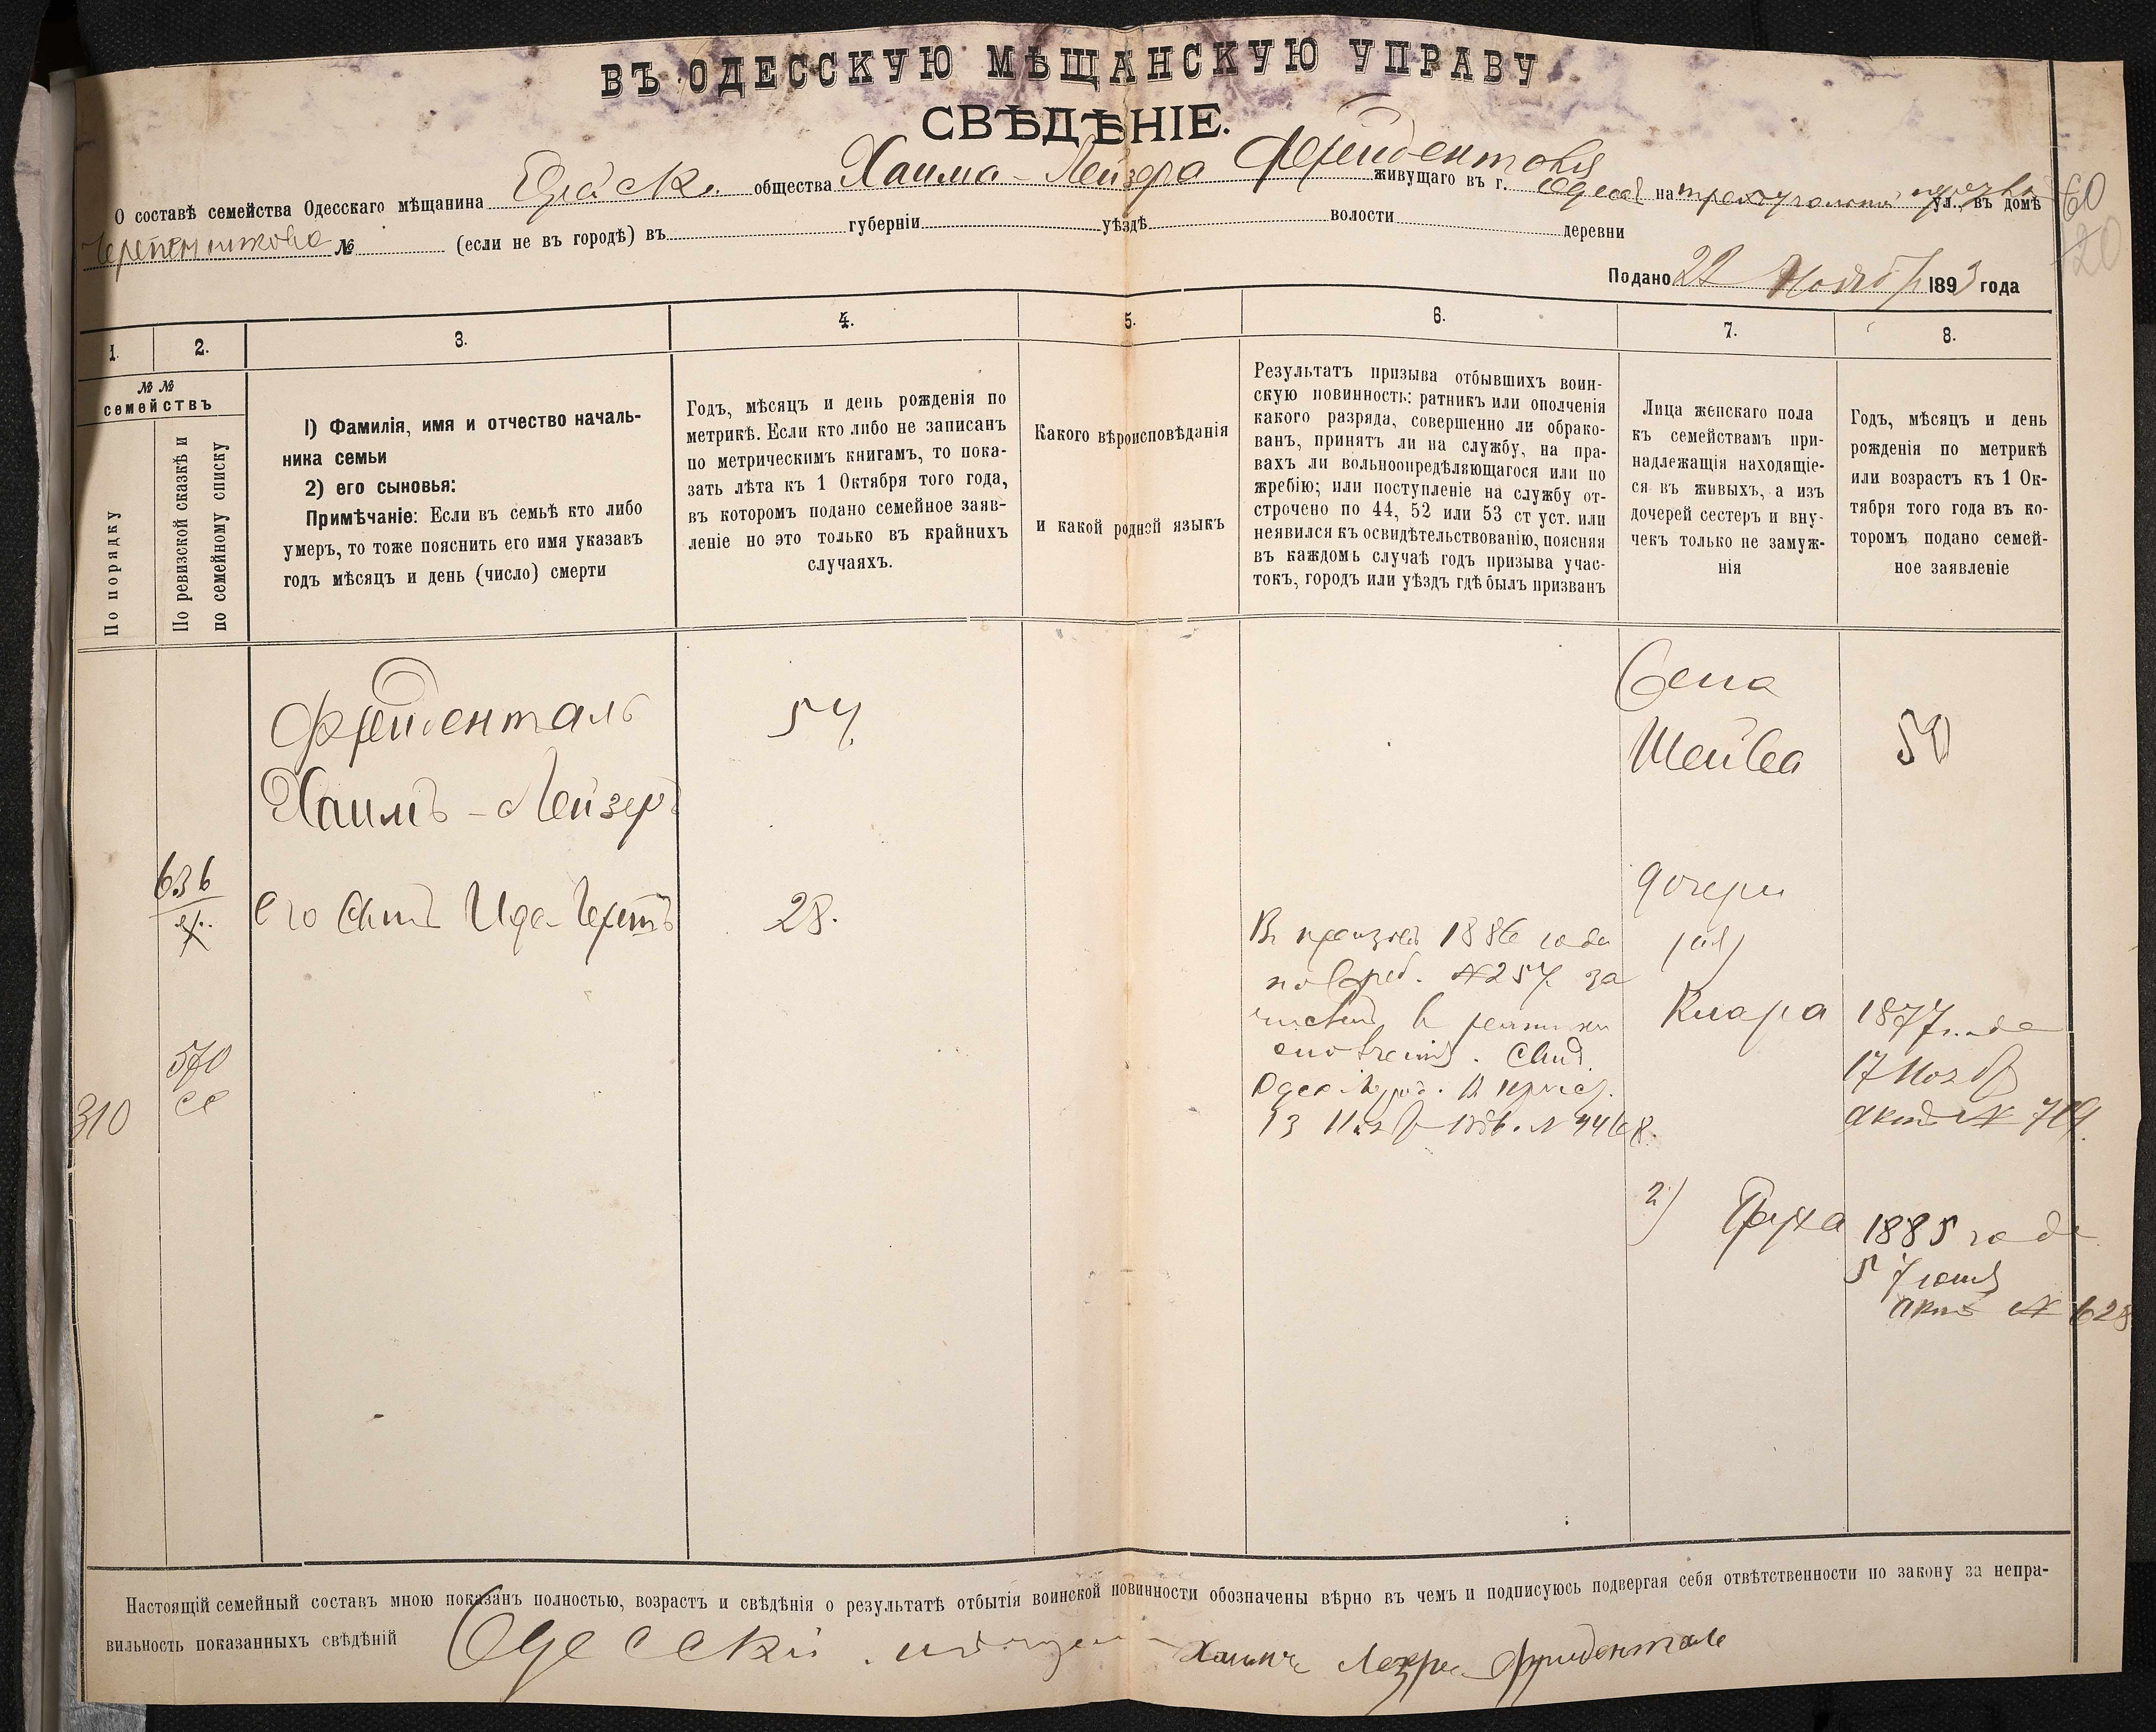 ВЪ ОДЕССКУЮ МѢЩАНСКУЮ УПРАВУ
СВѢДѢНІЕ.
О составѣ семейства Одесскаго мѣщанина общества Хаима-Лейзера живущаго въ г. Одессѣ на ул., въ домѣ
№ (если не въ городѣ) въ губерніи уѣздѣ волости деревни
Подано 22 Ноября 1893 года
60
20
1. 2. 3. 4. 5. 6. 7. 8.
№ № семействъ
По порядку
По ревизской сказкѣ и по семейному списку
I) Фамилія, имя и отчество началь-
ника семьи
2) его сыновья:
Примѣчаніе: Если въ семьѣ кто либо
умеръ, то тоже пояснить его имя указавъ
годъ мѣсяцъ и день (число) смерти
Годъ, мѣсяцъ и день рожденія по
метрикѣ. Если кто либо не записанъ
по метрическимъ книгамъ, то пока-
зать лѣта къ 1 Октября того года,
въ которомъ подано семейное заяв-
леніе но это только въ крайнихъ
случаяхъ.
Какого вѣроисповѣданія
и какой родной языкъ
Результатъ призыва отбывшихъ воин-
скую повинность: ратникъ или ополченія
какого разряда, совершенно ли обрако-
ванъ, принятъ ли на службу, на пра-
вахъ ли вольноопредѣляющагося или по
жребію; или поступленіе на службу от-
строчено по 44, 52 или 53 ст уст. или
неявился къ освидѣтельствованію, поясняя
въ каждомъ случаѣ годъ призыва учас-
токъ, городъ или уѣздъ гдѣ былъ призванъ
Лица женскаго пола
къ семействамъ при-
надлежащія находящіе-
ся въ живыхъ, а изъ
дочерей сестеръ и вну-
чекъ только не замуж-
нія
Годъ, мѣсяцъ и день
рожденія по метрикѣ
или возрастъ къ 1 Ок-
тября того года въ ко-
торомъ подано семей-
ное заявленіе
Фрейденталь
Хаимъ-Лейзеръ
57
Шейва
50
636
его сынъ
28.
дочери
Въ призывъ 1886 года
по жреб. №257 за
численъ въ ратники
ополченія. Свид.
13 Нояб
Клара
1877 года
17 Нояб
актъ № 719.
570
310
2) Бруха
1885 года
5
актъ № 628
Настоящій семейный составъ мною показанъ полностью, возрастъ и свѣдѣнія о результатѣ отбытія воинской повинности обозначены вѣрно въ чемъ и подписуюсь подвергая себя отвѣтственности по закону за непра-
вильность показанныхъ свѣдѣній Одесскій Хаимъ Фриденталь